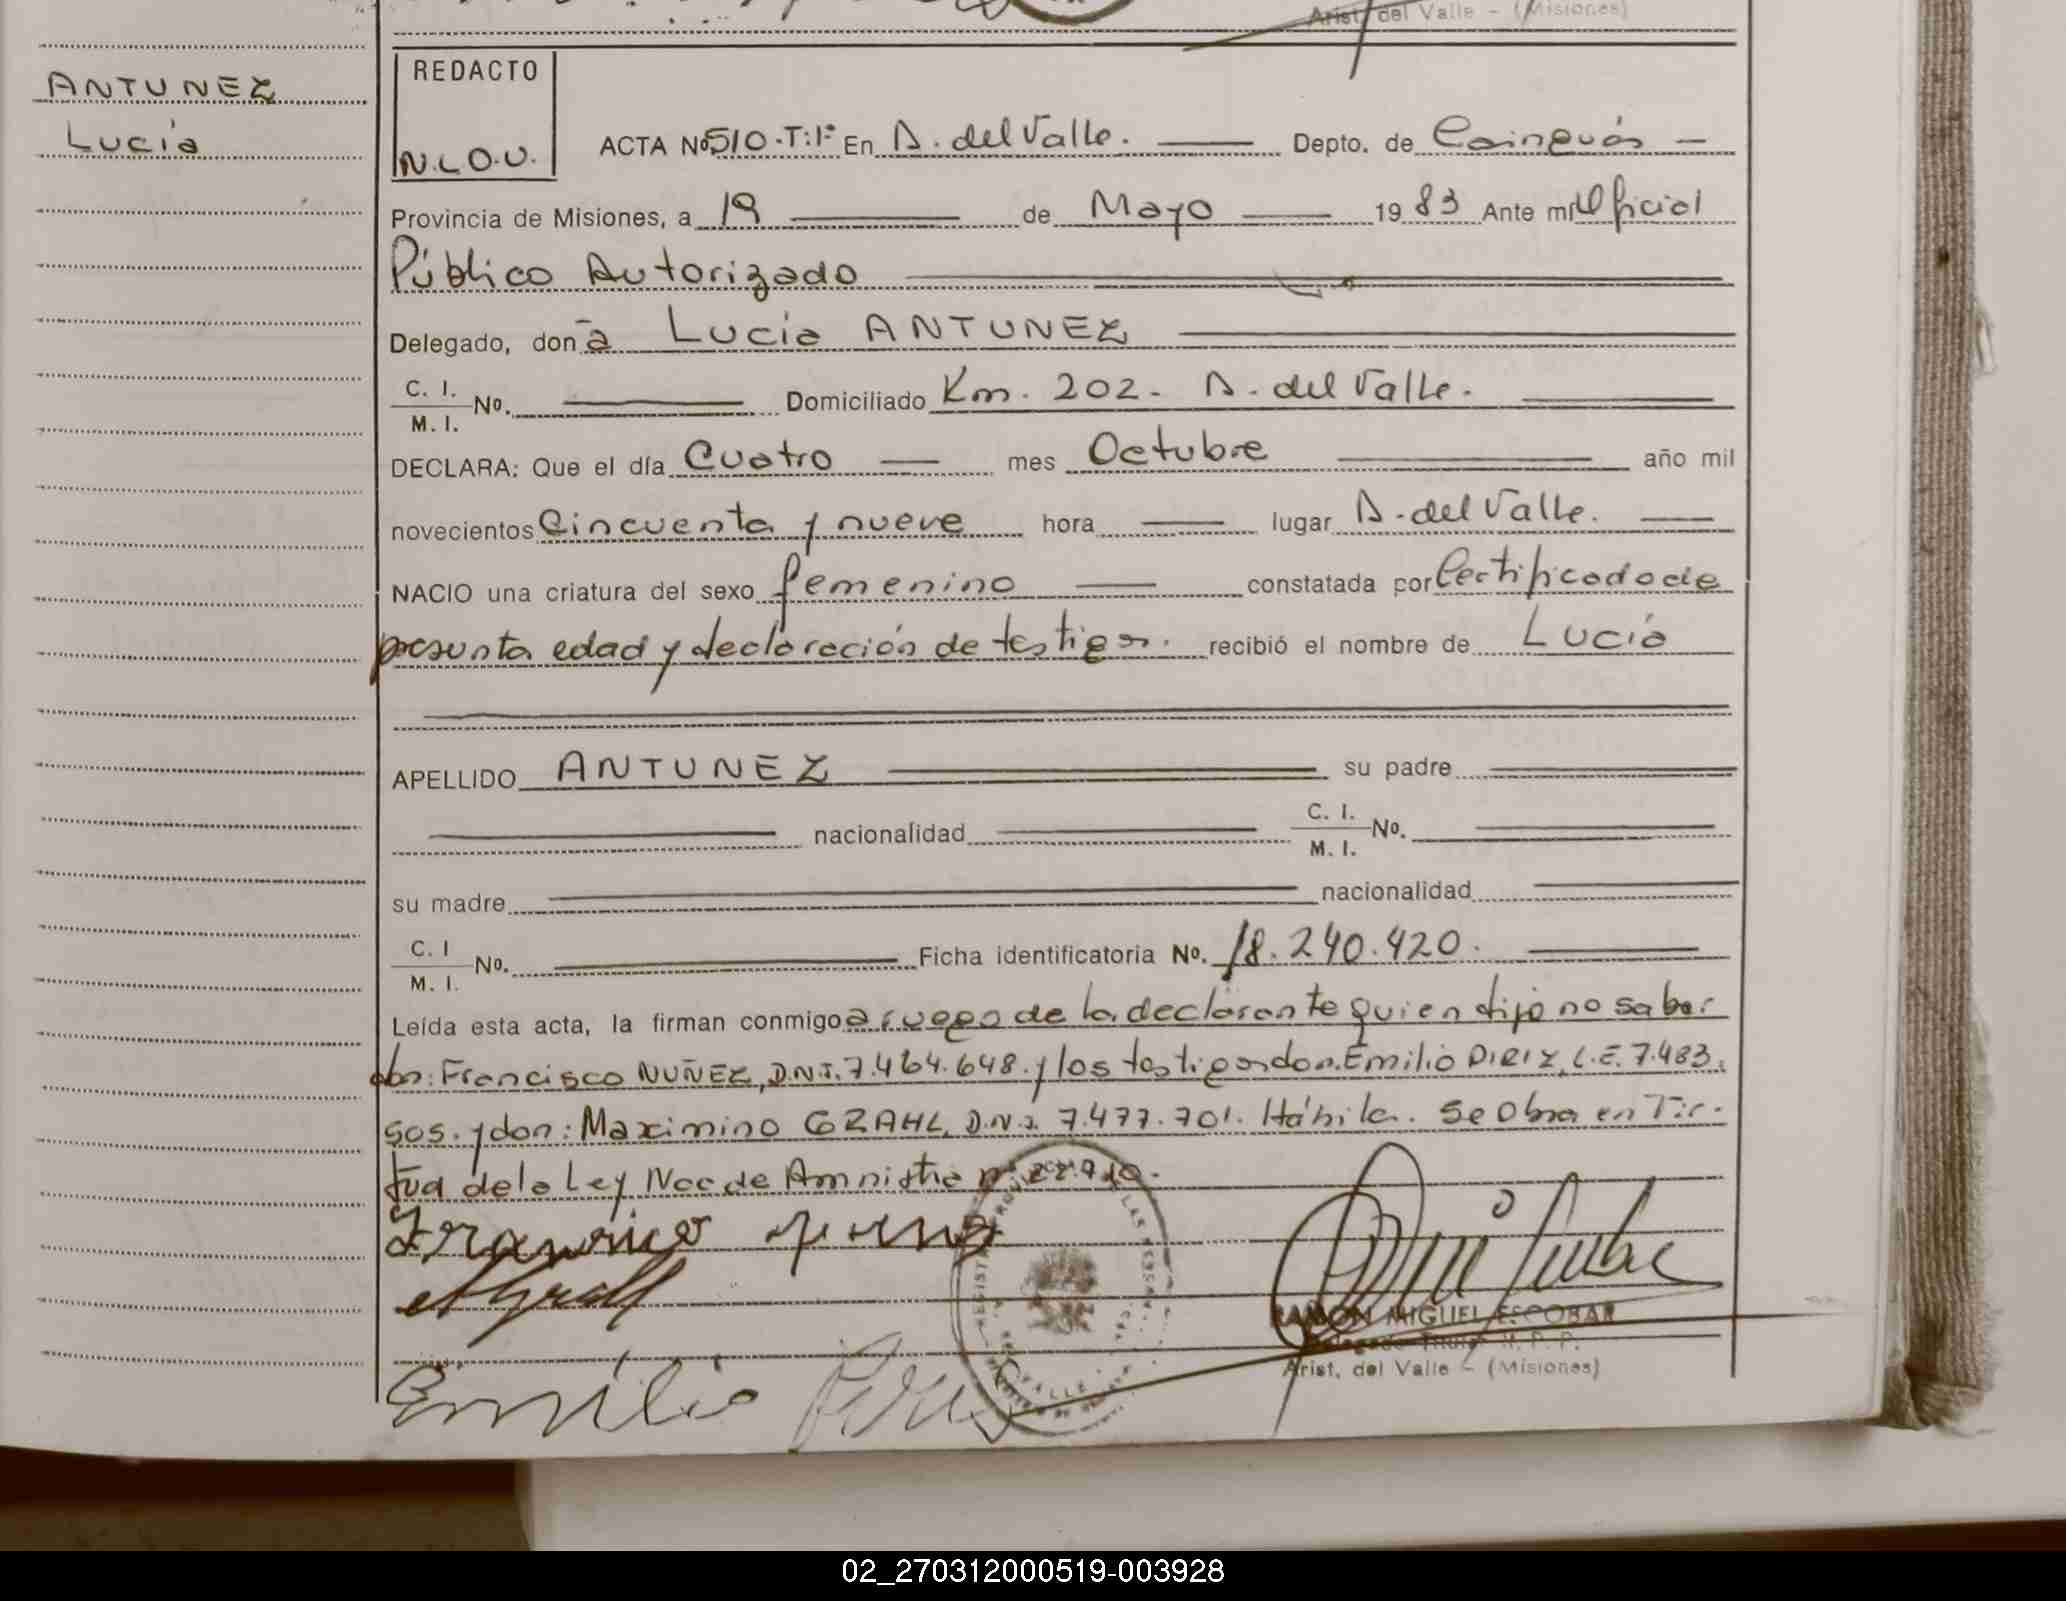 Arist. del Valle - (Misiones)
ANTUNEZ
Lucía
REDACTO
N.L.O.V.
ACTA Nº 510-T:1º En A. del Valle. Depto. de Cainguás -
Provincia de Misiones, a 19 de Mayo 1983 Ante mi Oficial
Público Autorizado
Delegado, doña Lucía ANTUNEZ
C. I.
M. I. Nº. Domiciliado Km. 202- A. del Valle.
DECLARA: Que el día Cuatro mes Octubre año mil
novecientos Cincuenta y nueve hora lugar A. del Valle.
NACIO una criatura del sexo femenino constatada por Certificado de
presunta edad y declaración de testigos. recibió el nombre de Lucía
APELLIDO ANTUNEZ su padre
nacionalidad C. I.
M. I. Nº.
su madre nacionalidad
C. I
M. I. Nº. Ficha identificatoria Nº. 18.240.420.
Leída esta acta, la firman conmigo a ruego de la declarante quien dijo no saber
don: Francisco NUÑEZ, D.N.I. 7.464.648. y los testigos don. Emilio DIRIZ, L.E. 7.483.
505. y don: Maximino GRAHL, D.N.I. 7.477.701. Hábiles. Se Obra en Vir-
tud de la Ley Nac de Amnistía nº 22.710.
Emilio
RAMON MIGUEL ESCOBAR
Delegado Titular R. P. P.
Arist. del Valle - (Misiones)
02_270312000519-003928